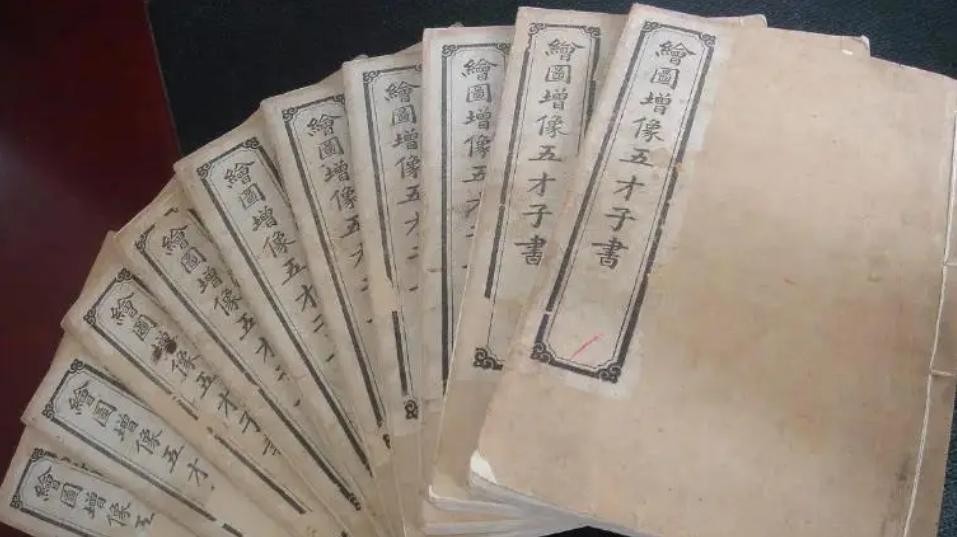 繪圖增像五才子書
繪圖增像五才子書
繪圖增像五才子
繪圖增像五才子
繪圖增像五才子
繪圖增像五才子
繪圖增像五才子
繪圖增像五才子書
繪圖增像五才
繪圖增像五